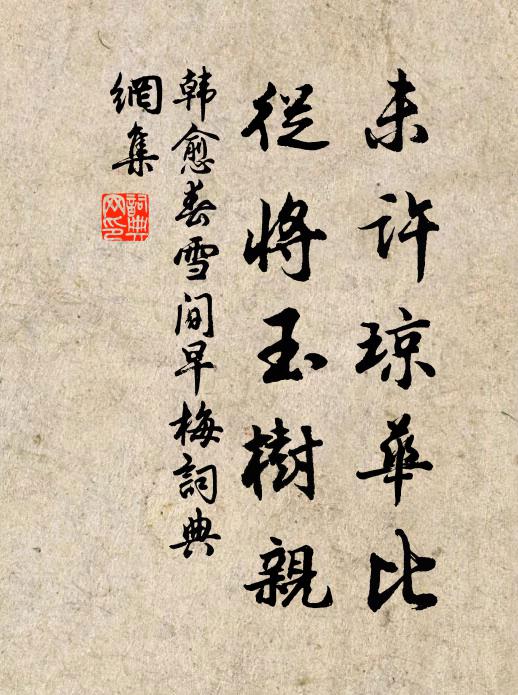 未许琼華比
従将玉樹親
韩愈春雪間早梅詞典
網集
詞典
网印